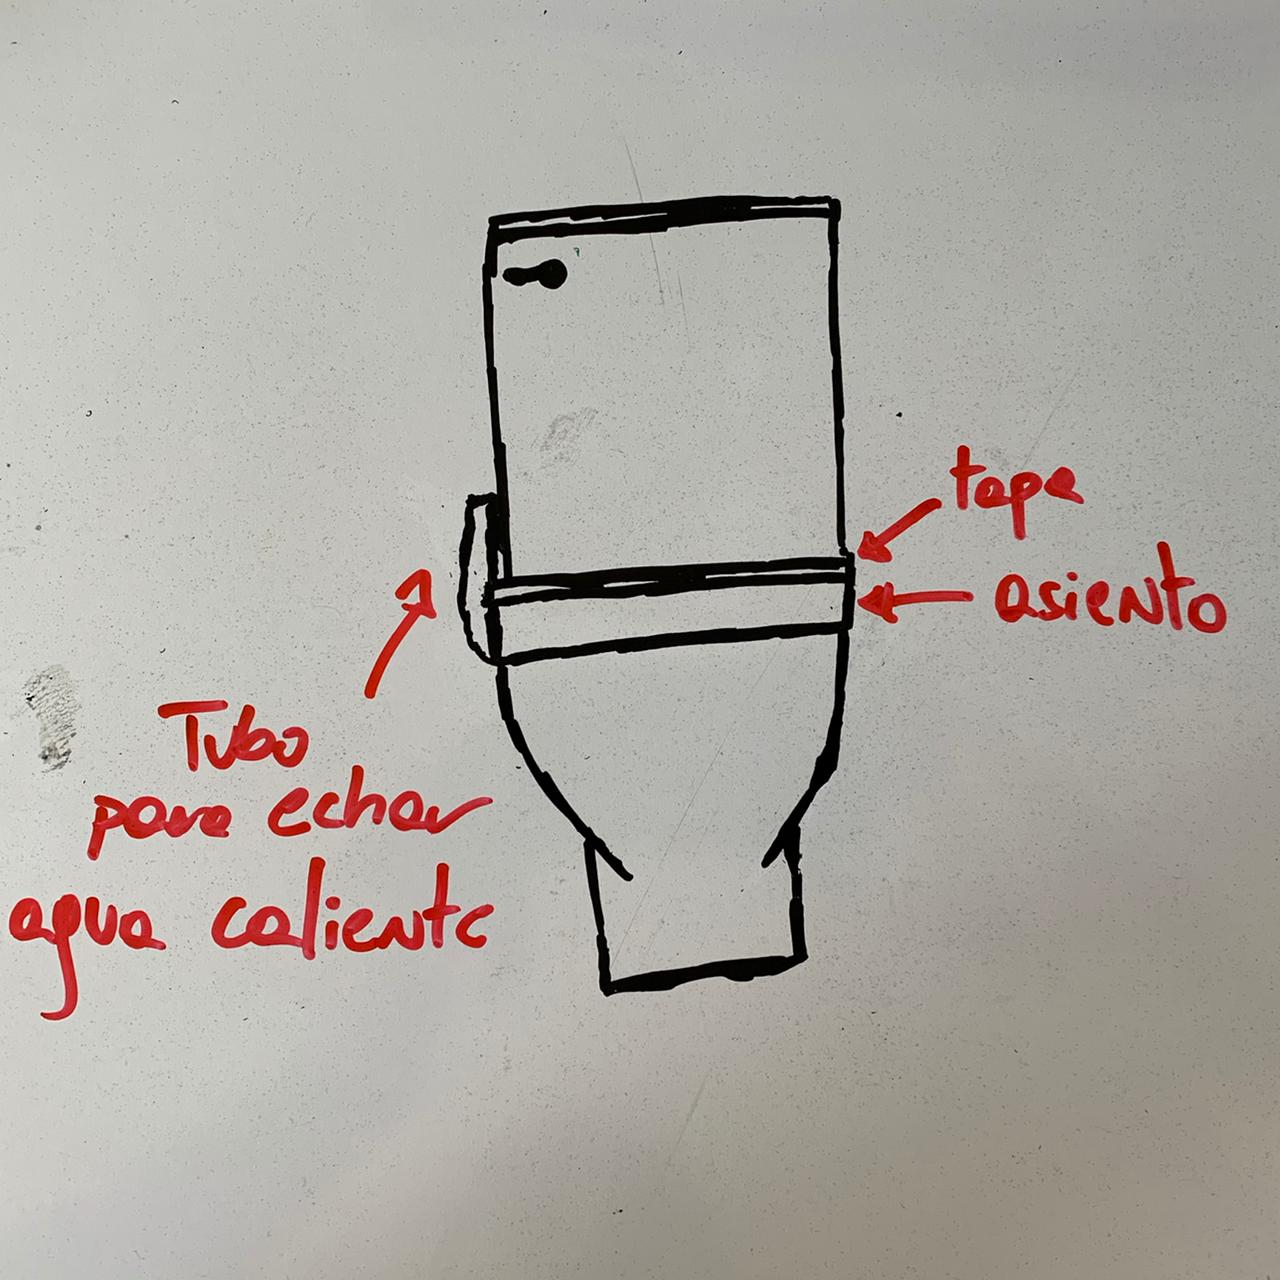 tapa
asiento
Tubo
para echar
agua caliente